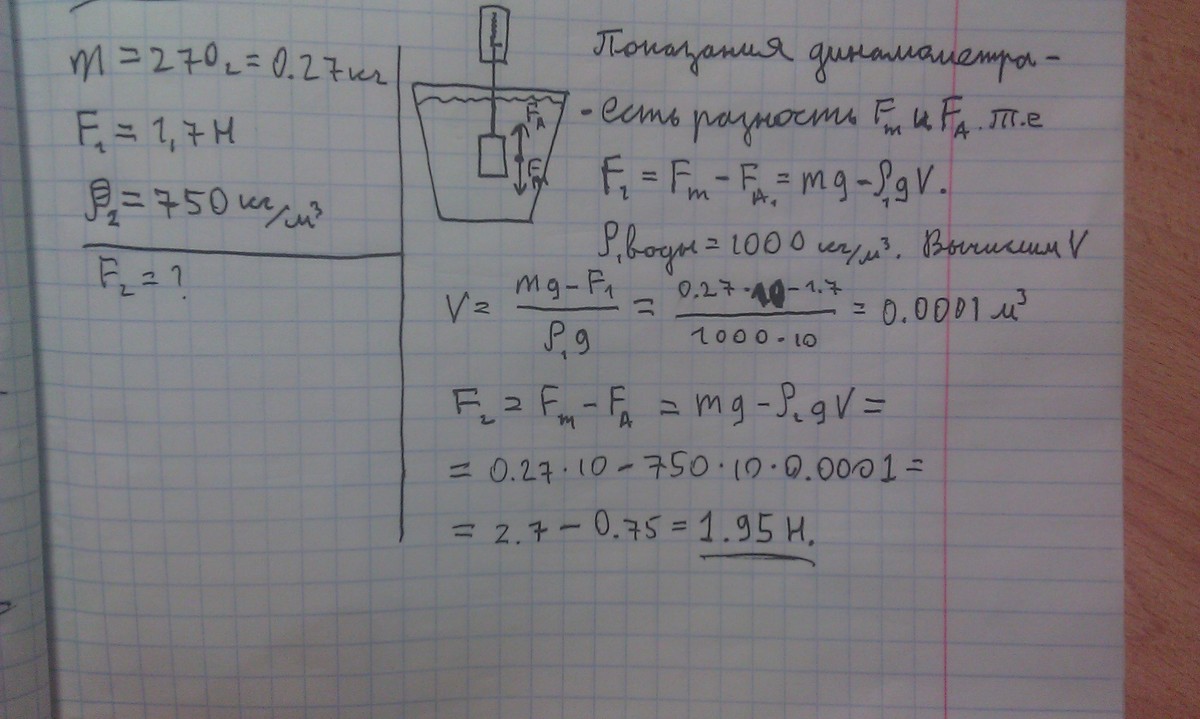 m = 270г = 0.27 кг
F₁ = 1,7 Н
ρ₂ = 750 кг/м³
F₂ = ?
Fᴀ
Fт
Показания динамометра -
- есть разность Fт и Fᴀ. т.е
F₁ = Fт - Fᴀ₁ = mg - ρ₁gV.
ρ₁воды = 1000 кг/м³. Вычислим V
V = (mg - F₁)/(ρ₁g) = (0.27·10 - 1.7)/(1000·10) = 0.0001 м³
F₂ = Fт - Fᴀ = mg - ρ₂gV =
= 0.27·10 - 750·10·0.0001 =
= 2.7 - 0.75 = 1.95 Н.